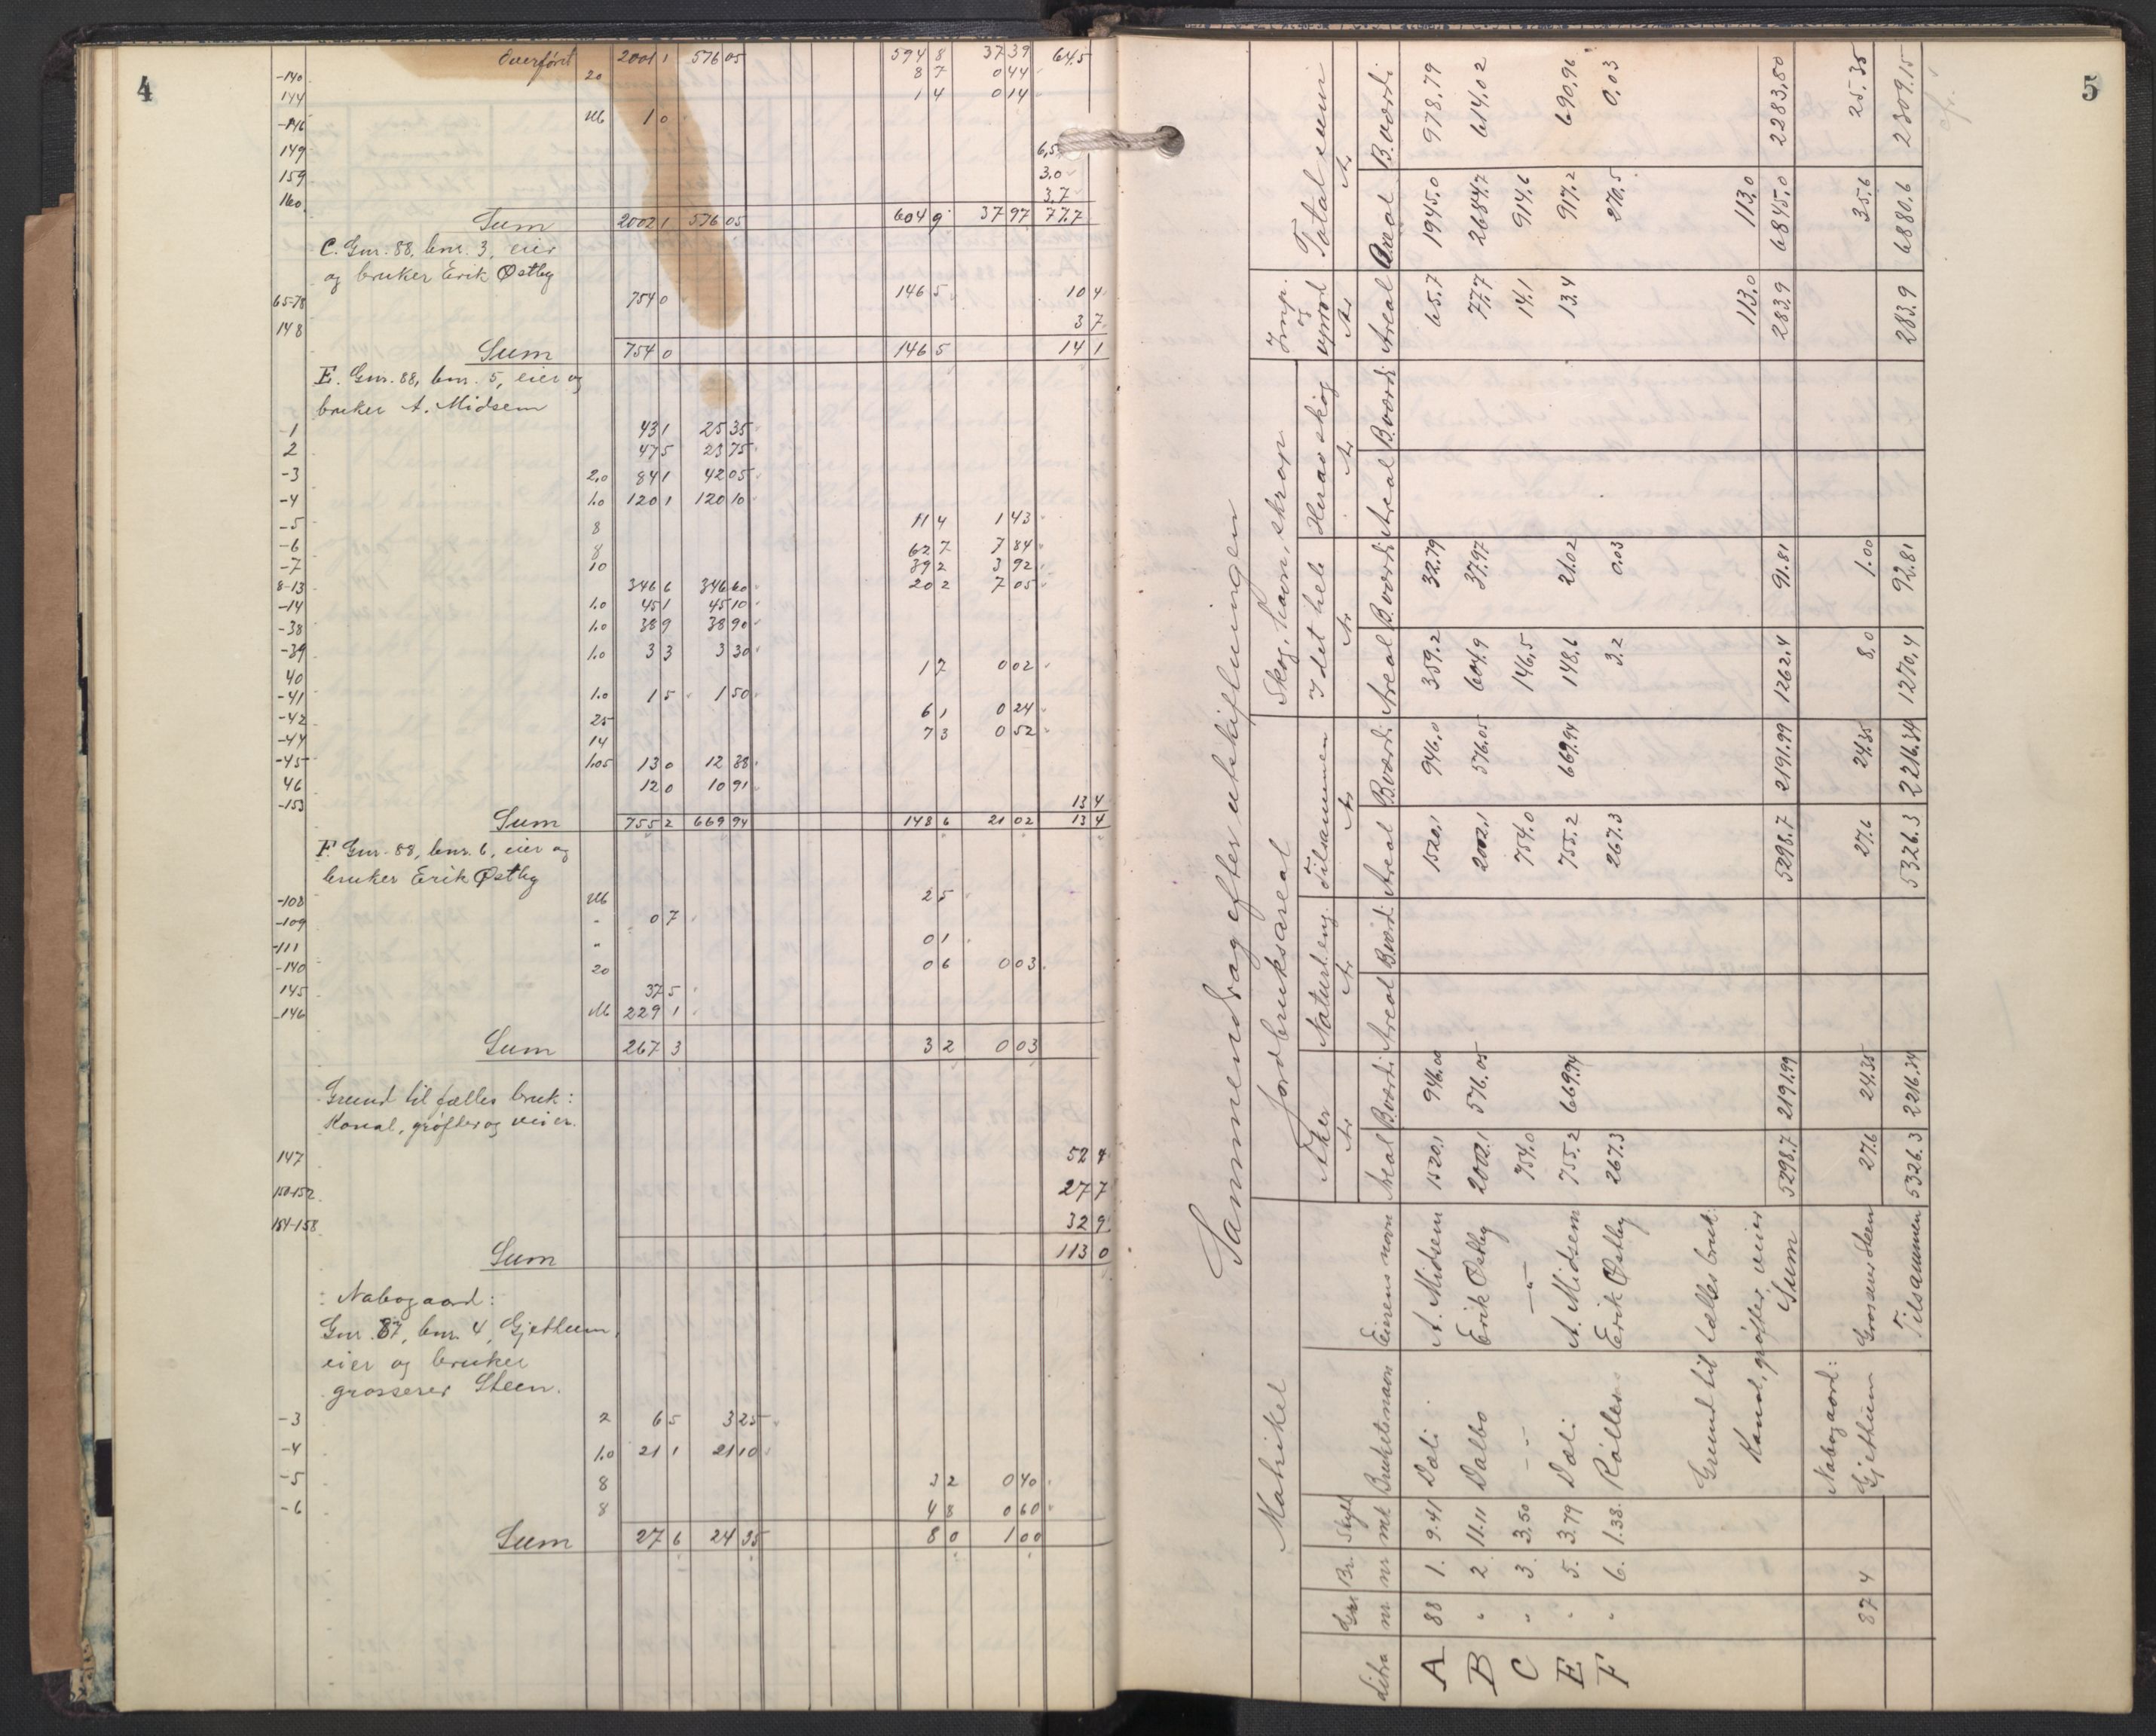 4
Overført 2001 1 576 05 594 8 37 39 64.5
-140 20 8 7 0 44
144 1 4 0 14
-146 Ub 1 0
149 6,5
159 3,0
160 3,7
Sum 2002 1 576 05 604 9 37 97 77,7
C. Gnr. 88, bnr. 3, eier
og bruker Erik Østby
65-78 754 0 146 5 10 4
148 3 7
Sum 754 0 146 5 14 1
E. Gnr. 88, bnr. 5, eier og
bruker A. Midsem
-1 43 1 25 35
2 47 5 23 75
-3 2,0 84 1 42 05
-4 1.0 120 1 120 10
-5 8 11 4 1 43
-6 8 62 7 7 84
-7 10 39 2 3 92
8-13 346 6 346 60 20 2 7 05
-14 1.0 45 1 45 10
-38 1.0 38 9 38 90
-39 1.0 3 3 3 30
40 1 7 0 02
-41 1.0 1 5 1 50
-42 25 6 1 0 24
-44 14 7 3 0 52
-45 1.05 13 0 12 38
46 12 0 10 91
-153 13 4
Sum 755 2 669 94 148 6 21 02 13 4
F. Gnr. 88, bnr. 6, eier og
bruker Erik Østby
-108 Ub 2 5
-109 - 0 7
-111 " 0 1
-140 20 0 6 0 03
145 37 5
-146 Ub 229 1
Sum 267 3 3 2 0 03
Grund til fælles bruk:
Kanal, grøfter og veier.
147 52 4
150-152 27 7
154-158 32 9
Sum 113 0
Nabogaard:
Gnr. 87, bnr. 4, Gjethum,
eier og bruker
grosserer Steen.
-3 2 6 5 3 25
-4 1.0 21 1 21 10
-5 8 3 2 0 40
-6 8 4 8 0 60
Sum 27 6 24 35 8 0 1 00
5
Sammendrag efter utskiftningen
Matrikel Jordbruksareal Skog, havn, skrap Imp. og uprod Total sum
Aker Naturl. eng. Tilsammen I det hele Herav skog
Ar Ar Ar Ar Ar Ar Ar
Litra Gnr nr. Br. nr Skyld mk Bruketsnavn Eierens navn Areal B.værdi Areal B.værdi Areal B.værdi Areal B.værdi Areal B.værdi Areal Areal B.værdi
A 88 1. 9.41 Dæli A. Midsem 1520,1 946.00 1520,1 946,0 359.2 32.79 65.7 1945.0 978.79
B " 2. 11.11 Dalbo Erik Østby 2002.1 576.05 2002.1 576.05 604.9 37.97 77.7 2684.7 614.02
C " 3. 3.50 - " - - " - 754.0 754.0 146,5 14.1 914.6
E " 5. 3.79 Dæli A. Midsem 755.2 669.94 755.2 669.94 148.6 21.02 13.4 917.2 690.96
F " 6. 1.38 Erik Østby 267.3 267.3 3.2 0.03 270.5 0.03
Grund til fælles bruk:
Kanal, grøfter, veier 113.0 113.0
Sum 5298.7 2191.99 5298.7 2191.99 1262.4 91.81 283.9 6845.0 2283.80
Nabogaard:
87 4 Gjethum Grosserer Steen 27.6 24.35 27.6 24.35 8.0 1.00 35.6 25.35
Tilsammen 5326.3 2216.34 5326.3 2216.34 1270.4 92.81 283.9 6880.6 2309.15